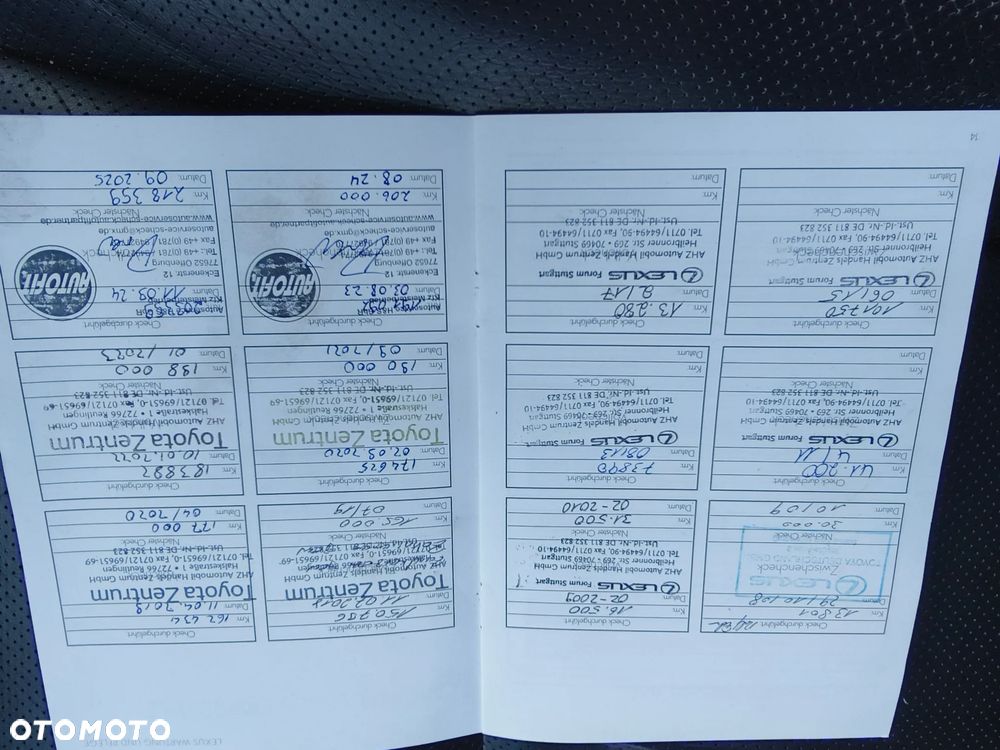 Check durchgeführt
Km: 13801
Datum: 29/10/08
Zwischencheck
LEXUS
Nächster Check
Km: 30.000
Datum: 10/09
Check durchgeführt
Km: 16.500
Datum: 02-2009
LEXUS Forum Stuttgart
AHZ Automobil Handels Zentrum GmbH
Heilbronner Str. 269 • 70469 Stuttgart
Tel. 0711/64494-90, Fax 0711/64494-10
Ust.-Id-Nr. DE 811 352 823
Nächster Check
Km: 31.500
Datum: 02-2010
Check durchgeführt
Km: 41.200
Datum: 4/11
LEXUS Forum Stuttgart
AHZ Automobil Handels Zentrum GmbH
Heilbronner Str. 269 • 70469 Stuttgart
Tel. 0711/64494-90, Fax 0711/64494-10
Ust.-Id-Nr. DE 811 352 823
Nächster Check
Km:
Datum:
Check durchgeführt
Km: 73890
Datum: 08/13
LEXUS Forum Stuttgart
AHZ Automobil Handels Zentrum GmbH
Heilbronner Str. 269 • 70469 Stuttgart
Tel. 0711/64494-90, Fax 0711/64494-10
Ust.-Id-Nr. DE 811 352 823
Nächster Check
Km:
Datum:
Check durchgeführt
Km: 101750
Datum: 06/15
LEXUS Forum Stuttgart
AHZ Automobil Handels Zentrum GmbH
Heilbronner Str. 269 • 70469 Stuttgart
Tel. 0711/64494-90, Fax 0711/64494-10
Ust.-Id-Nr. DE 811 352 823
Km:
Datum:
Check durchgeführt
Km: 13.280
Datum: 2/17
LEXUS Forum Stuttgart
AHZ Automobil Handels Zentrum GmbH
Heilbronner Str. 269 • 70469 Stuttgart
Tel. 0711/64494-90, Fax 0711/64494-10
Ust.-Id-Nr. DE 811 352 823
Nächster Check
Km:
Datum:
14
LEXUS WARTUNG UND PFLEGE
Check durchgeführt
Km:
Datum:
Toyota Zentrum
AHZ Automobil Handels Zentrum GmbH
Nächster Check
Km: 165000
Datum: 07/19
Check durchgeführt
Km: 162 434
Datum: 11.04.2019
Toyota Zentrum
AHZ Automobil Handels Zentrum GmbH
Halskestraße 1 • 72766 Reutlingen
Tel. 07121/69651-0, Fax 07121/69651-69
Ust.-Id-Nr. DE 811 352 823
Nächster Check
Km: 177 000
Datum: 04/2020
Check durchgeführt
Km: 174625
Datum: 02.03.2020
Toyota Zentrum
AHZ Automobil Handels Zentrum GmbH
Halskestraße 1 • 72766 Reutlingen
Tel. 07121/69651-0, Fax 07121/69651-69
Ust.-Id-Nr. DE 811 352 823
Nächster Check
Km: 190 000
Datum: 03/2021
Check durchgeführt
Km: 183882
Datum: 10.01.2022
Toyota Zentrum
AHZ Automobil Handels Zentrum GmbH
Halskestraße 1 • 72766 Reutlingen
Tel. 07121/69651-0, Fax 07121/69651-69
Ust.-Id-Nr. DE 811 352 823
Nächster Check
Km: 198 000
Datum: 01/2023
Check durchgeführt
Kfz Meisterbetrieb
Datum: 03.08.23
AUTOFIT
Eckenerstr. 12
77652 Offenburg
autoservice-scheck@gmx.de
www.autoservice-scheck.autofitpartner.de
Nächster Check
Km: 206.000
Datum: 08.24
Check durchgeführt
Kfz Meisterbetrieb
Datum: 11.09.24
AUTOFIT
Eckenerstr. 12
77652 Offenburg
autoservice-scheck@gmx.de
www.autoservice-scheck.autofitpartner.de
Nächster Check
Km: 218 359
Datum: 09.2025
OTOMOTO